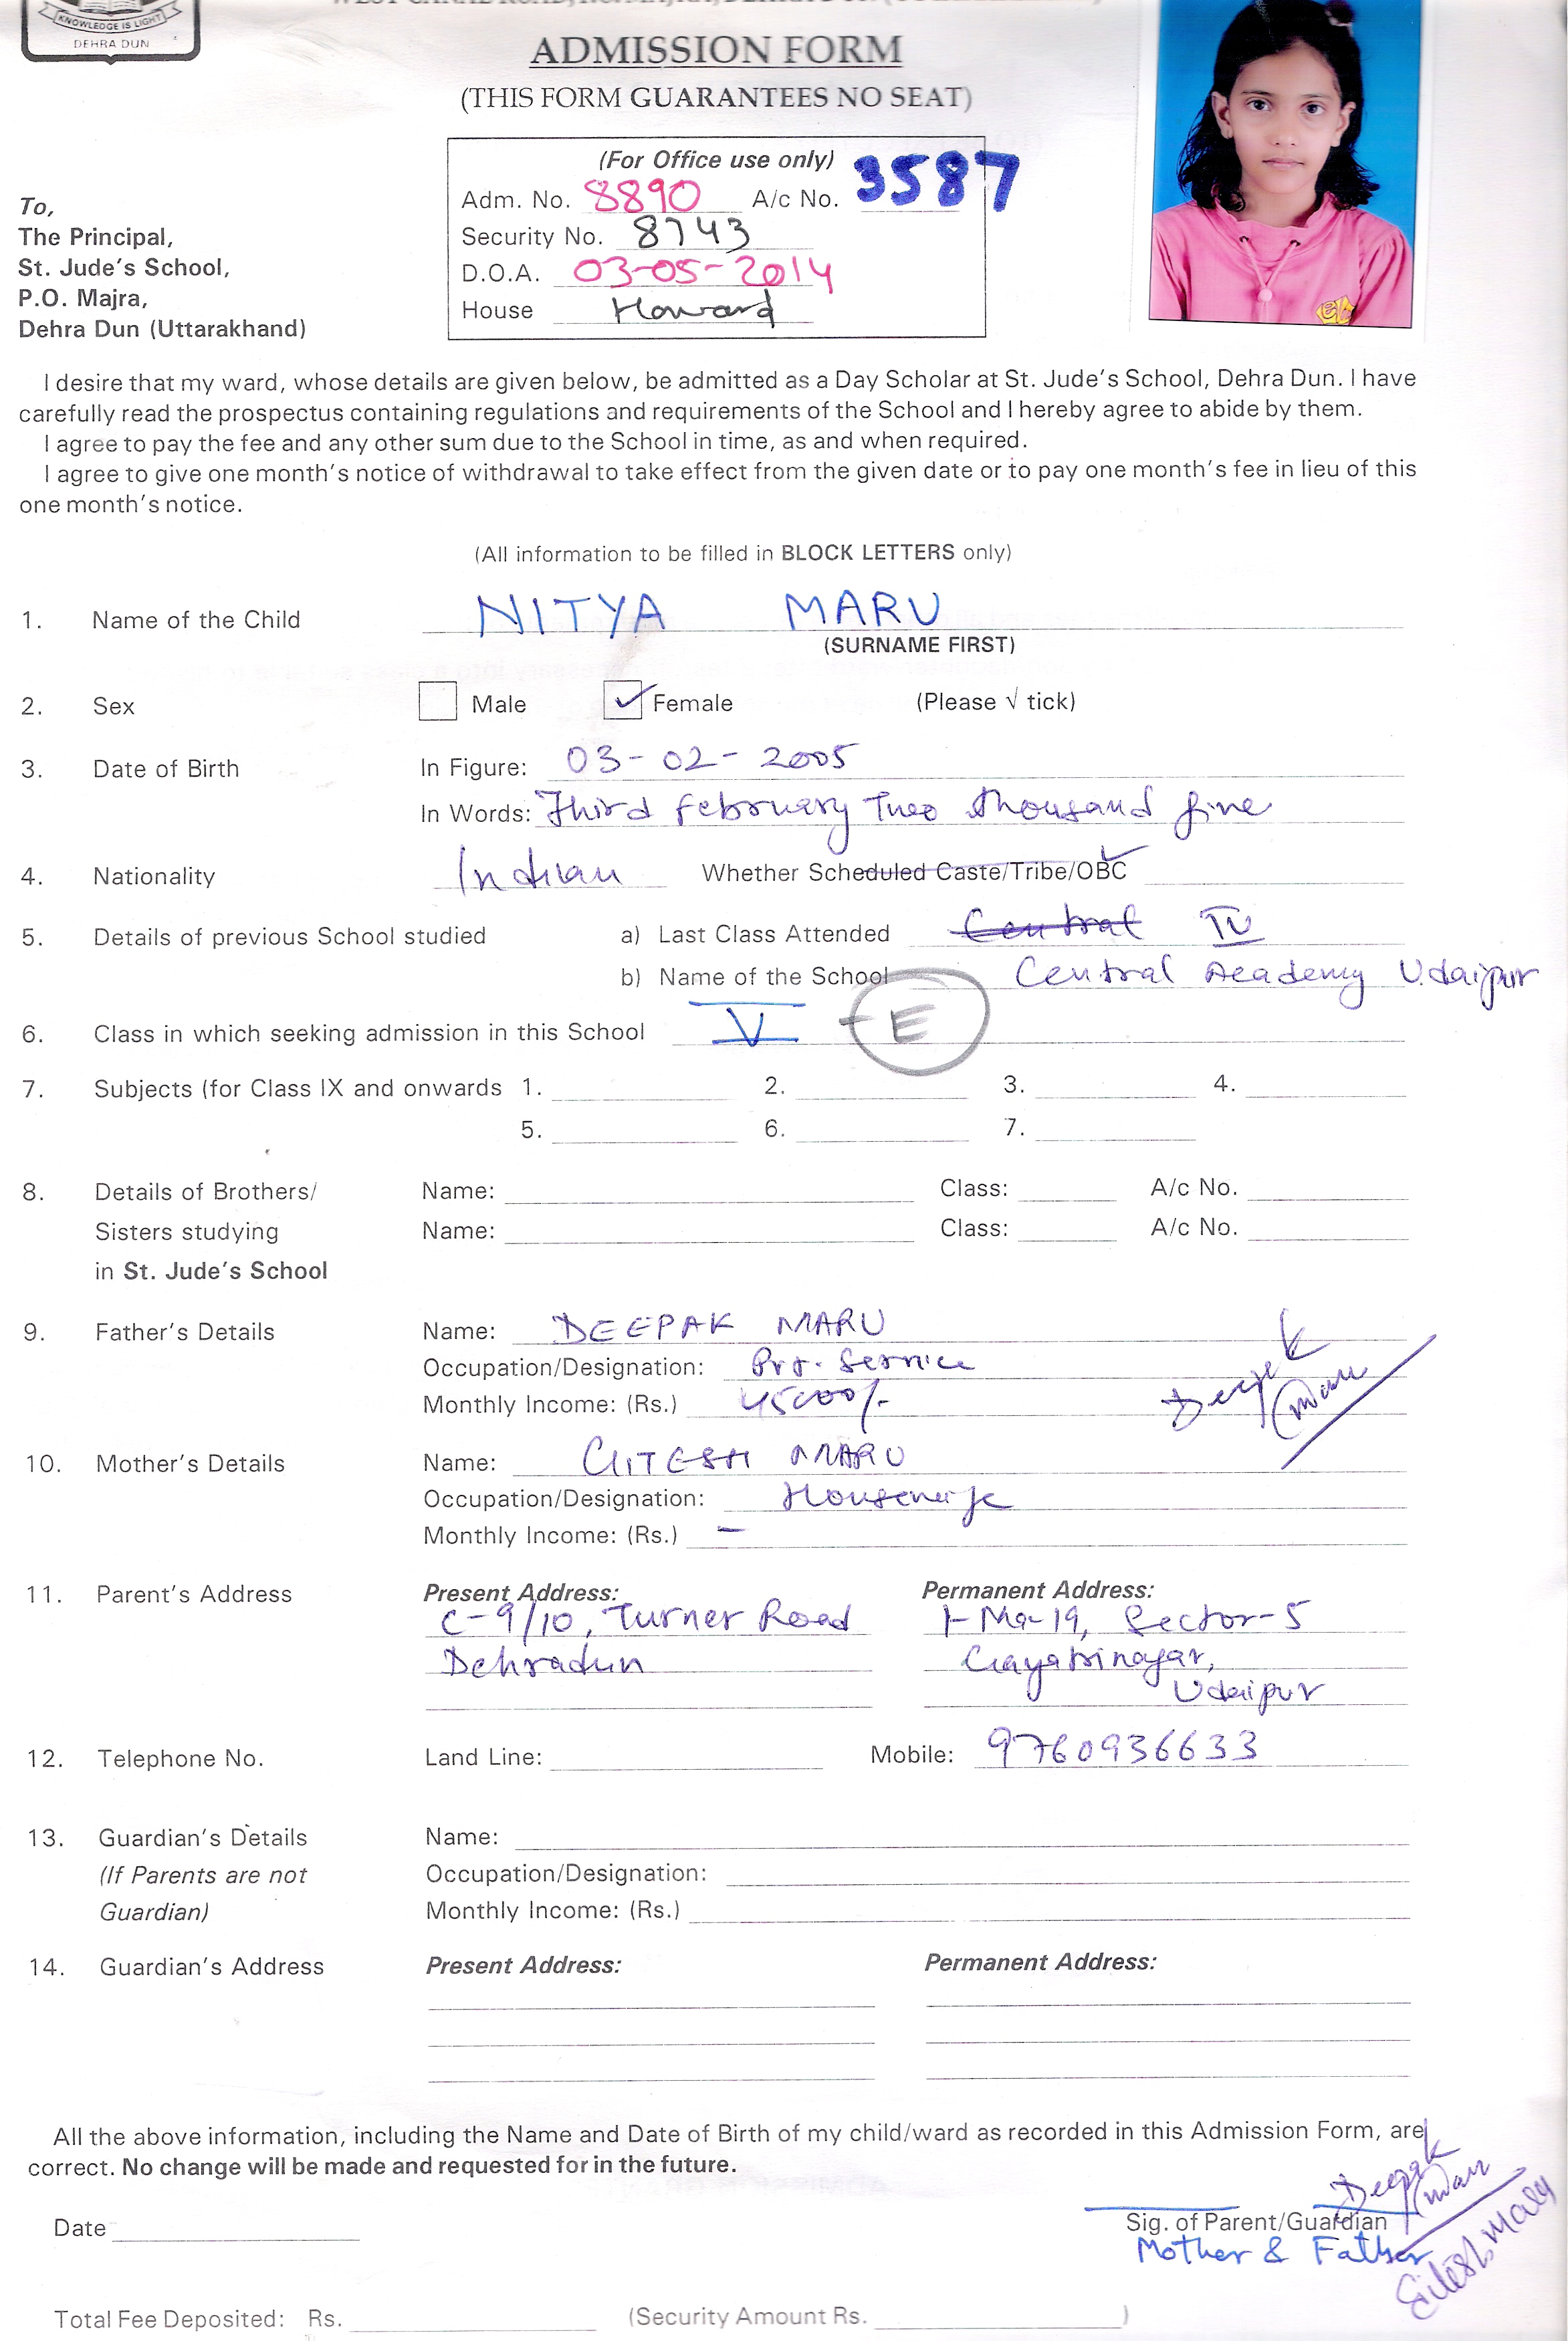 KNOWLEDGE IS LIGHT
DEHRA DUN
ADMISSION FORM
(THIS FORM GUARANTEES NO SEAT)
(For Office use only)
Adm. No. 8890 A/c No. 3587
Security No. 8743
D.O.A. 03-05-2014
House Howard
To,
The Principal,
St. Jude's School,
P.O. Majra,
Dehra Dun (Uttarakhand)
I desire that my ward, whose details are given below, be admitted as a Day Scholar at St. Jude's School, Dehra Dun. I have
carefully read the prospectus containing regulations and requirements of the School and I hereby agree to abide by them.
I agree to pay the fee and any other sum due to the School in time, as and when required.
I agree to give one month's notice of withdrawal to take effect from the given date or to pay one month's fee in lieu of this
one month's notice.
(All information to be filled in BLOCK LETTERS only)
1. Name of the Child NITYA MARU
(SURNAME FIRST)
2. Sex Male ✓ Female (Please √ tick)
3. Date of Birth In Figure: 03-02-2005
In Words: Third February Two thousand five
4. Nationality Indian Whether Scheduled Caste/Tribe/OBC ✓
5. Details of previous School studied a) Last Class Attended Central IV
b) Name of the School Central Academy Udaipur
6. Class in which seeking admission in this School V - E
7. Subjects (for Class IX and onwards 1. 2. 3. 4.
5. 6. 7.
8. Details of Brothers/ Name: Class: A/c No.
Sisters studying Name: Class: A/c No.
in St. Jude's School
9. Father's Details Name: DEEPAK MARU
Occupation/Designation: Pvt. Service
Monthly Income: (Rs.) 45000/-
Deepak Maru
10. Mother's Details Name: GITESH MARU
Occupation/Designation: Housewife
Monthly Income: (Rs.) -
11. Parent's Address Present Address: Permanent Address:
C-9/10, Turner Road 1-Ma-19, Sector-5
Dehradun Gayatrinagar,
Udaipur
12. Telephone No. Land Line: Mobile: 9760936633
13. Guardian's Details Name:
(If Parents are not Occupation/Designation:
Guardian) Monthly Income: (Rs.)
14. Guardian's Address Present Address: Permanent Address:
All the above information, including the Name and Date of Birth of my child/ward as recorded in this Admission Form, are
correct. No change will be made and requested for in the future.
Deepak Maru
Date Sig. of Parent/Guardian
Mother & Father
Total Fee Deposited: Rs. (Security Amount Rs. )